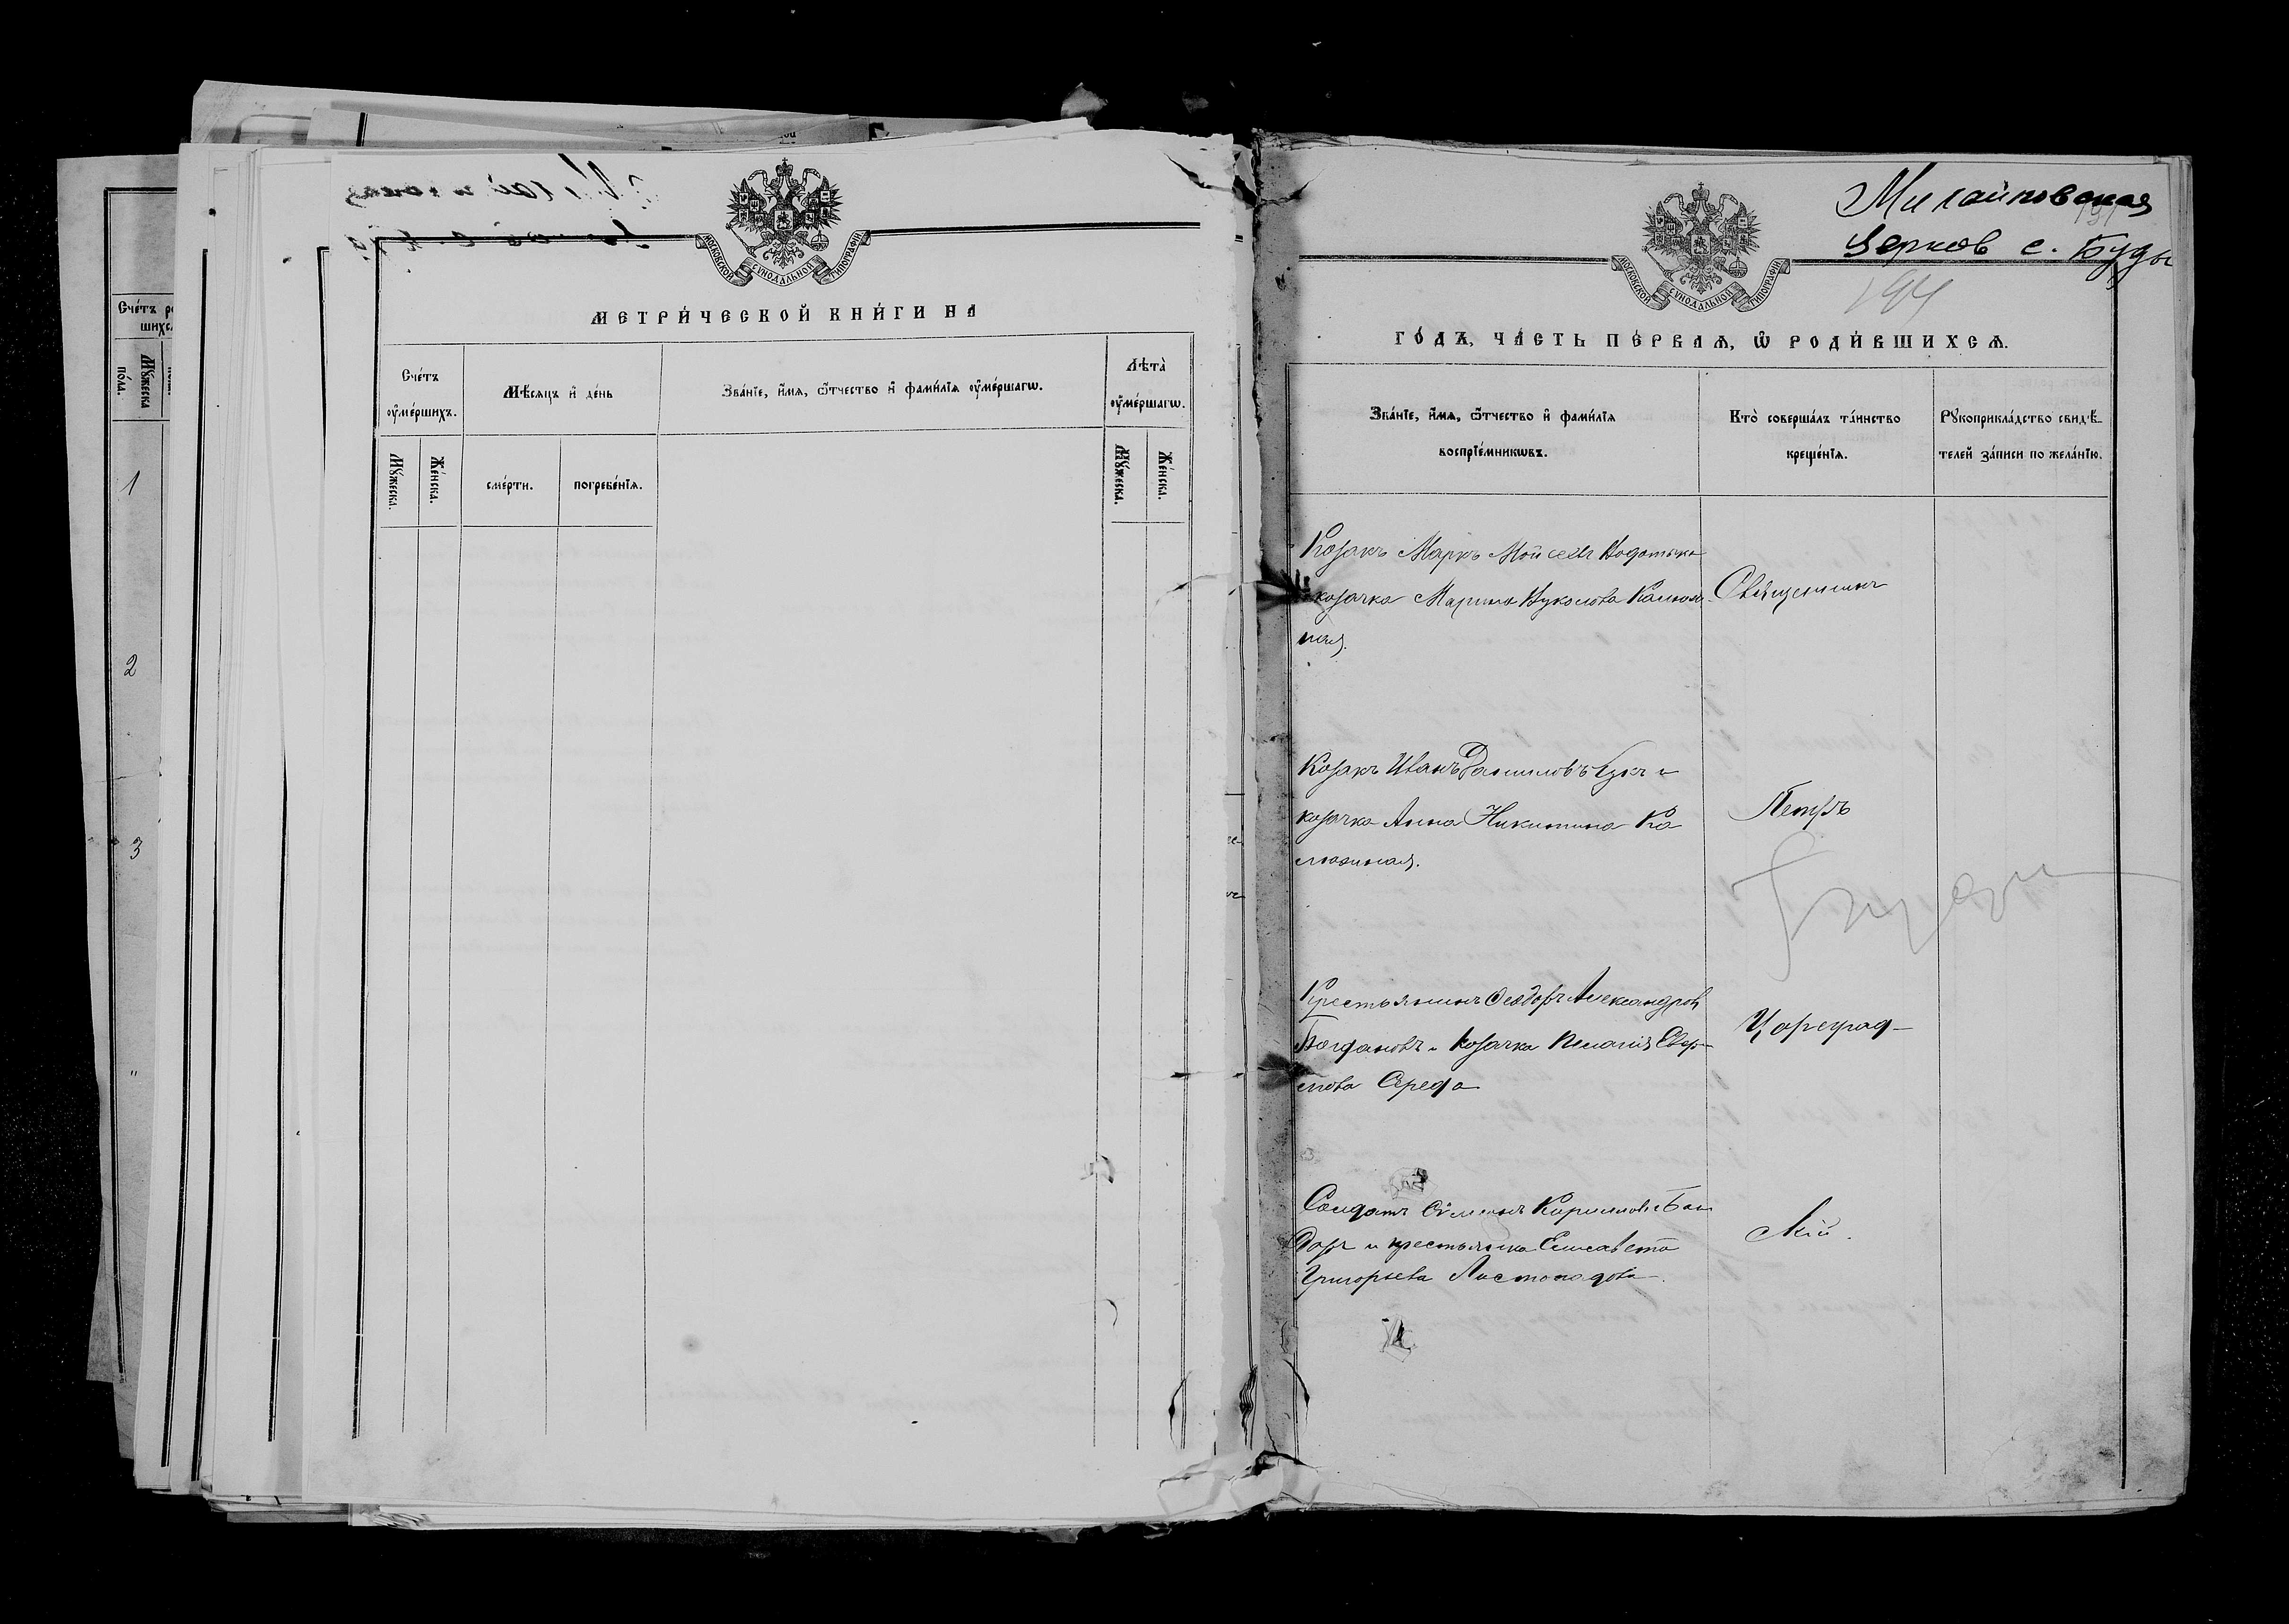 Счетъ ро
шихс
Мужеска
пола.
1
2
3
"
МОСКОВСКОЙ СѴНОДАЛЬНОЙ ТИПОГРАФІИ
МЕТРИ́ЧЕСКОЙ КНИ́ГИ НА
Сче́тъ
ᲂу҆ме́ршихъ.
Мѣ́сяцъ и҆ де́нь
Зва́нїе, и҆́мѧ, ѻ҆́тчество и҆ фами́лїѧ ᲂу҆ме́ршагѡ.
Лѣта̀
ᲂу҆ме́ршагѡ.
Мꙋ́жеска.
Же́нска.
сме́рти.
погребе́нїѧ.
Мꙋ́жеска.
Же́нска.
Михайловская
Церков с. Буды
194
МОСКОВСКОЙ СѴНОДАЛЬНОЙ ТИПОГРАФІИ
ГО́ДЪ, ЧА́СТЬ ПЕ́РВАѦ, Ѽ РОДИ́ВШИХСѦ.
Зва́нїе, и҆́мѧ, ѻ҆́тчество и҆ фами́лїѧ
воспрїе́мникѡвъ.
Кто̀ соверша́лъ та́инство
креще́нїѧ.
Рꙋкоприкла́дство свидѣ́-
телей за́писи по жела́нїю.
Козакъ Маркъ Мойсеевъ
козачка Марина Вуколова
ная.
Священникъ
Козакъ Иванъ Даниловъ Кукъ и
козачка Анна Никитина Ка
люжная.
Петръ
Крестьянинъ Ѳеодоръ Александровъ
Богдановъ и козачка Пелагія
Середа
Цареград-
Солдатъ Сѵмеонъ Кирилловъ Бон
даръ и крестьянка Елисавета
Григорьева Листопадова.
скій.